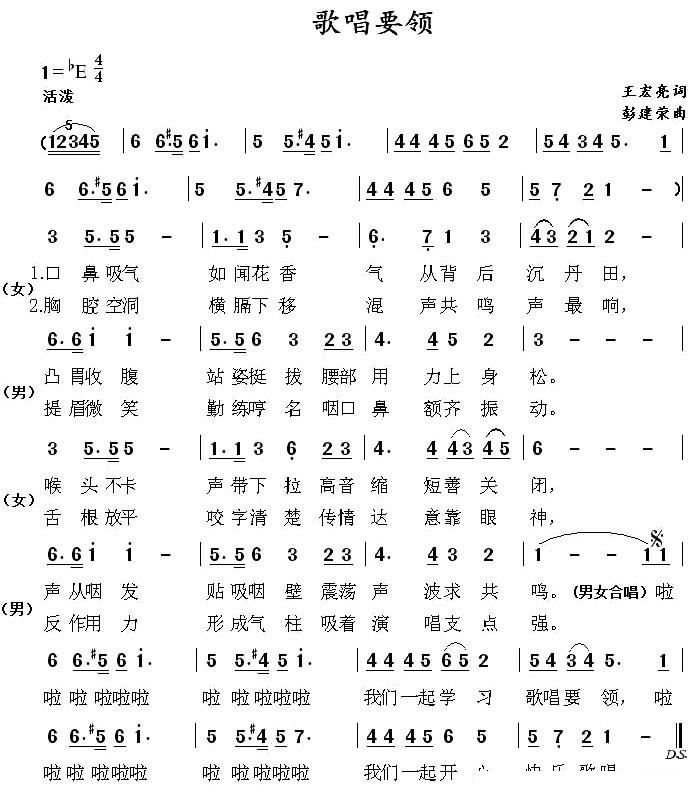 歌唱要领
1=♭E 4/4
活泼
王宏亮词
彭建荣曲
5
(12345 | 6 6.♯5 6 i. | 5 5.♯4 5 i. | 44 45 65 2 | 54 34 5. 1 |
6 6.♯5 6 i. | 5 5.♯4 5 7. | 44 45 6 5 | 5 7 2 1 - )|
3 5. 55 - | 1. 1 3 5 - | 6. 7 1 3 | 43 21 2 - |
(女) 1.口 鼻吸气 如闻花香 气 从背后 沉丹田,
2.胸 腔空洞 横膈下移 混 声共鸣 声最响,
6. 6 i i - | 5. 5 6 23 | 4. 4 5 2 | 3 - - - |
(男) 凸胃收腹 站姿挺拔腰部用 力上身 松。
提眉微笑 勤练哼名咽口鼻 额齐振 动。
3 5. 55 - | 1. 1 3 6 23 | 4. 4 43 45 | 6 - - - |
(女) 喉 头不卡 声带下拉高音缩 短善关 闭,
舌 根放平 咬字清楚传情达 意靠眼 神,
6. 6 i i - | 5. 5 6 3 23 | 4. 4 3 2 | 1 - - 11 |
(男) 声从咽发 贴吸咽壁震荡声 波求共 鸣。(男女合唱) 啦
反作用力 形成气柱吸着演 唱支点 强。
6 6.♯5 6 i. | 5 5.♯4 5 i. | 44 45 65 2 | 54 34 5. 1 |
啦 啦 啦啦啦 啦 啦 啦啦啦 我们一起学 习 歌唱要 领, 啦
6 6.♯5 6 i. | 5 5.♯4 5 7. | 44 45 6 5 | 5 7 2 1 - ‖
D.S.
啦 啦 啦啦啦 啦 啦 啦啦啦 我们一起开